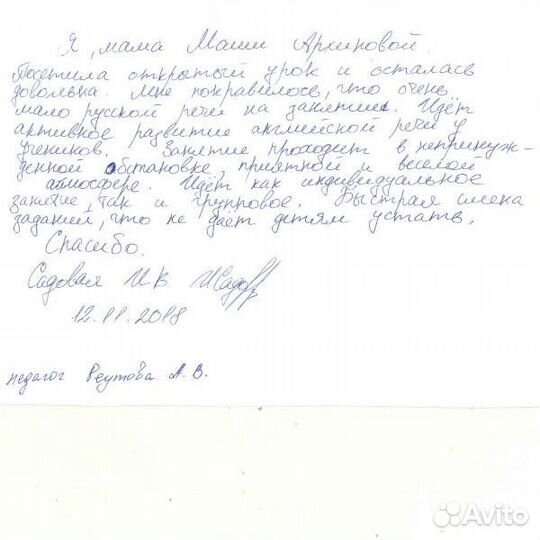 Я, мама Маши Архиповой.
Посетила открытый урок и осталась
довольна. Мне понравилось, что очень
мало русской речи на занятие. Идёт
активное развитие английской речи у
учеников. Занятие проходит в непринуж-
денной обстановке, приятной и веселой
атмосфере. Идёт как индивидуальное
занятие, так и групповое. Быстрая смена
заданий, что не даёт детям устать.
Спасибо.
Садовая И.В. ИСадо
12.11.2018
педагог Реутова А.В.
Avito